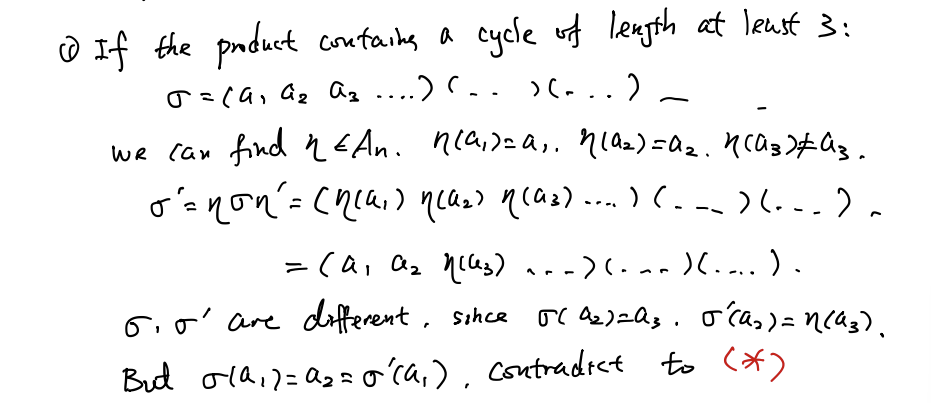 ① If the product contains a cycle of length at least 3:
σ = (a₁ a₂ a₃ ....) (-- )(-...) — -
we can find η ∈ Aₙ. η(a₁)=a₁. η(a₂)=a₂. η(a₃)≠a₃.
σ'= ηση' = (η(a₁) η(a₂) η(a₃) ....) (.---)(.--.).
= (a₁ a₂ η(a₃) ...-)(.-..)(....).
σ, σ' are different, since σ(a₂)=a₃. σ'(a₂)=η(a₃).
But σ(a₁)=a₂=σ'(a₁), contradict to (*)